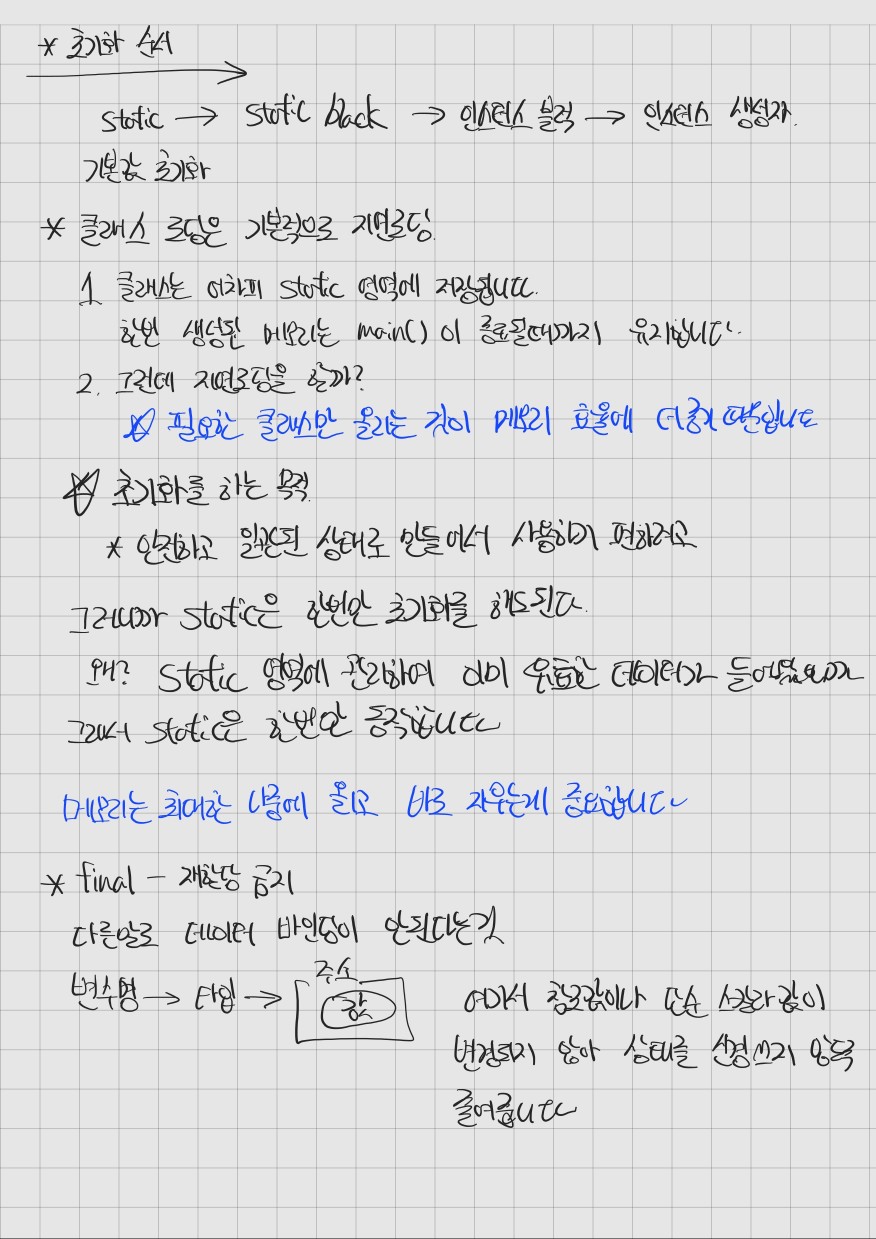 * 초기화 순서
static → static black → 인스턴스 블럭 → 인스턴스 생성자.
기본값 초기화
* 클래스 로딩은 기본적으로 지연로딩.
1. 클래스는 어차피 static 영역에 저장됩니다.
한번 생성된 메모리는 main() 이 종료될때까지 유지합니다.
2. 그런데 지연로딩을 할까?
☆ 필요한 클래스만 올리는 것이 메모리 효율에 더 좋기 때문입니다
☆ 초기화를 하는 목적.
* 안전하고 일관된 상태로 만들어서 사용하기 편하려고
그러니까 static은 한번만 초기화를 해도 된다.
왜? static 영역에 관리하여 이미 유효한 데이터가
그래서 static은 한번만 동작합니다
메모리는 최대한 나중에 올리고 바로 지우는게 중요합니다
* final - 재할당 금지
다른말로 데이터 바인딩이 안된다는것
주소
변수명 → 타입 → 값
여기서 참조값이나 단순 스칼라 값이
변경되지 않아 상태를 신경쓰지 않도록
줄여줍니다